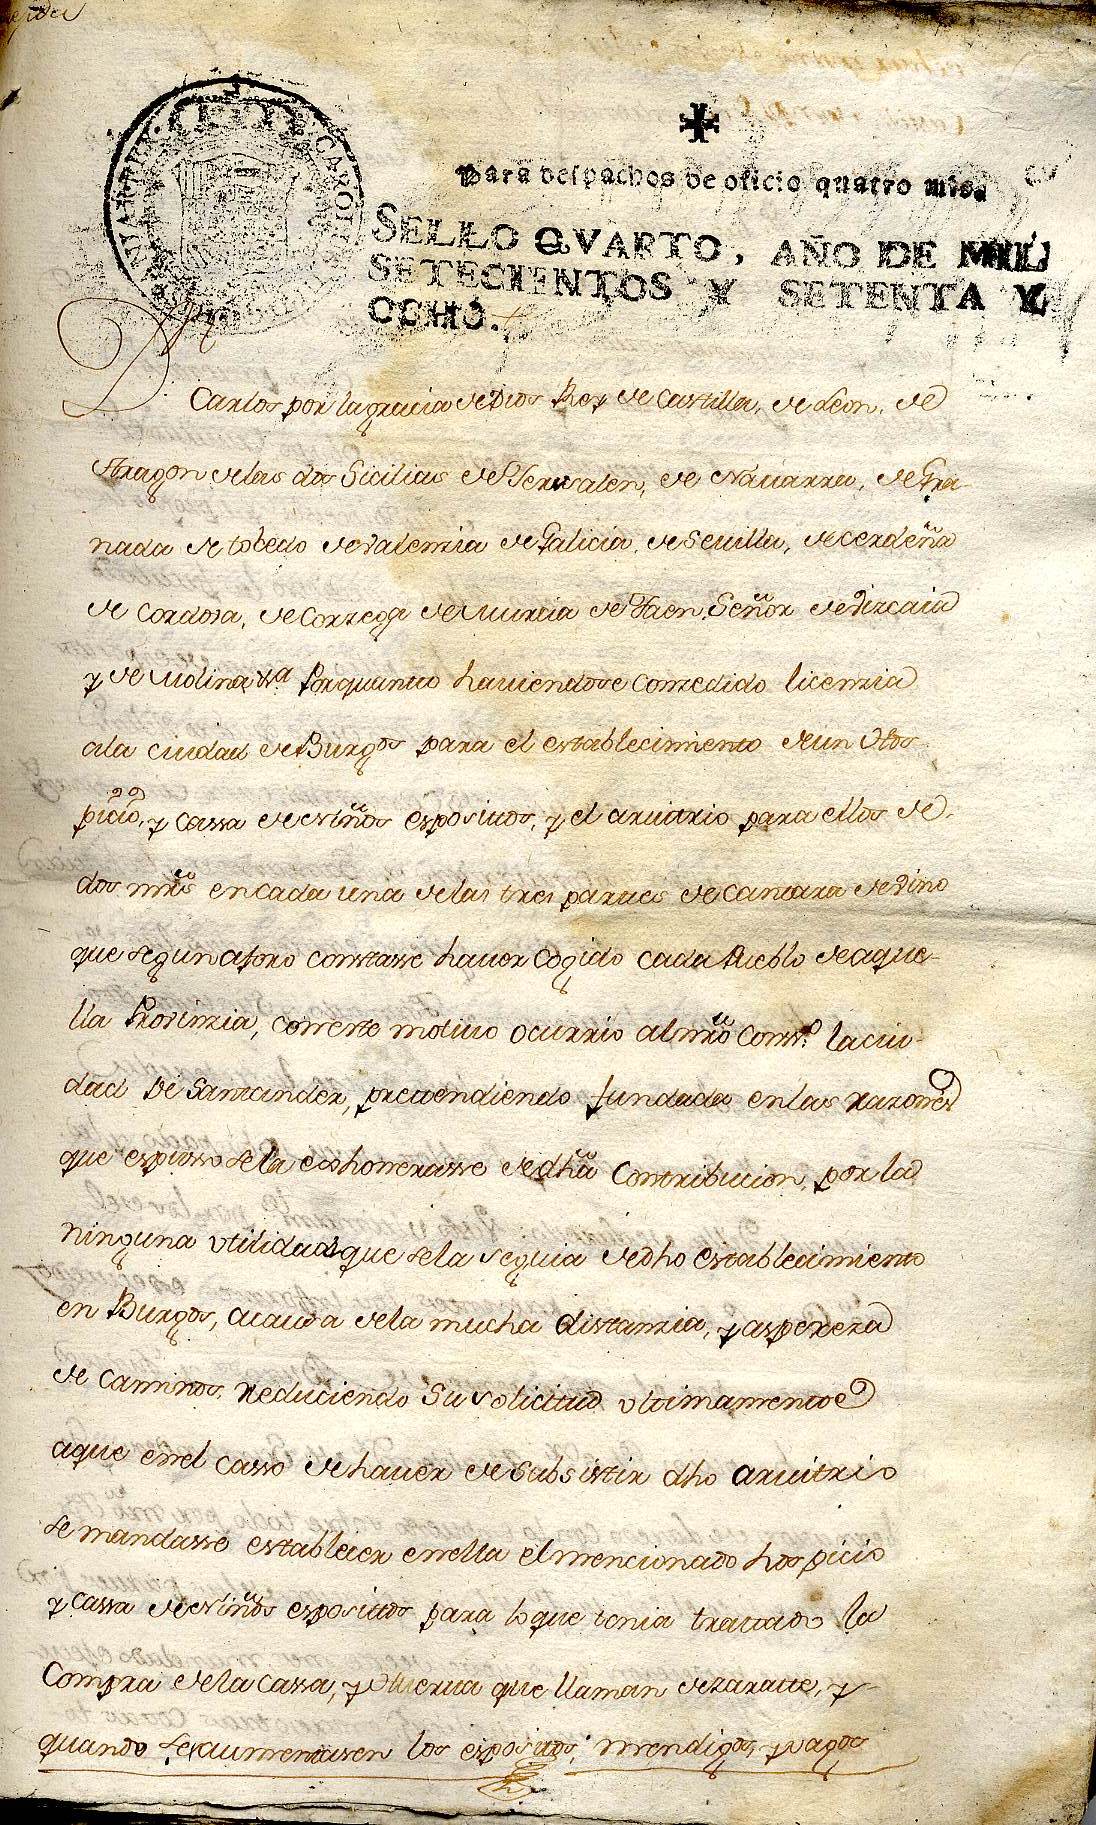 Para despachos de oficio quatro mrs.
SELLO QVARTO, AÑO DE MIL
SETECIENTOS Y SETENTA Y
OCHO.
Dn
Carlos por la gracia de Dios Rey de Castilla, de Leon, de
Aragon de las dos Sicilias de Jerusalen, de Navarra, de Gra-
nada de toledo de Valenzia de Galicia, de Sevilla, de cerdeña
de cordova, de Corzega de Murcia de Jaen, Señor de Vizcaia
y de Molina &a Por quanto haviendose Conzedido licenzia
ala ciudad de Burgos para el establecimiento de un Hos-
picio, y cassa de Niños espositos, y el arvitrio para ellos de
dos mrs en cada una de las tres partes de Cantara de vino
que segun aforo constasse haver Cogido cada Pueblo de aque-
lla Provinzia, con este motivo ocurrio al nro Consº. la ciu-
dad De Santander, pretendiendo fundada en las razones
que espusso se la exhonerasse de dha Contribucion, por la
ninguna utilidad que se la seguia de dho establecimiento
en Burgos, acausa de la mucha distanzia, y aspereza
de caminos, reduciendo su solicitud ultimamente
aque en el casso de haver de Subsistir dho arvitrio
se mandasse establecer en ella el mencionado hospicio
y cassa de Niños espositos para lo que tenia tratado la
Compra de la cassa, y Huerta que llaman de zaratte, y
quando se aumentasen los espositos, mendigos, y vagos